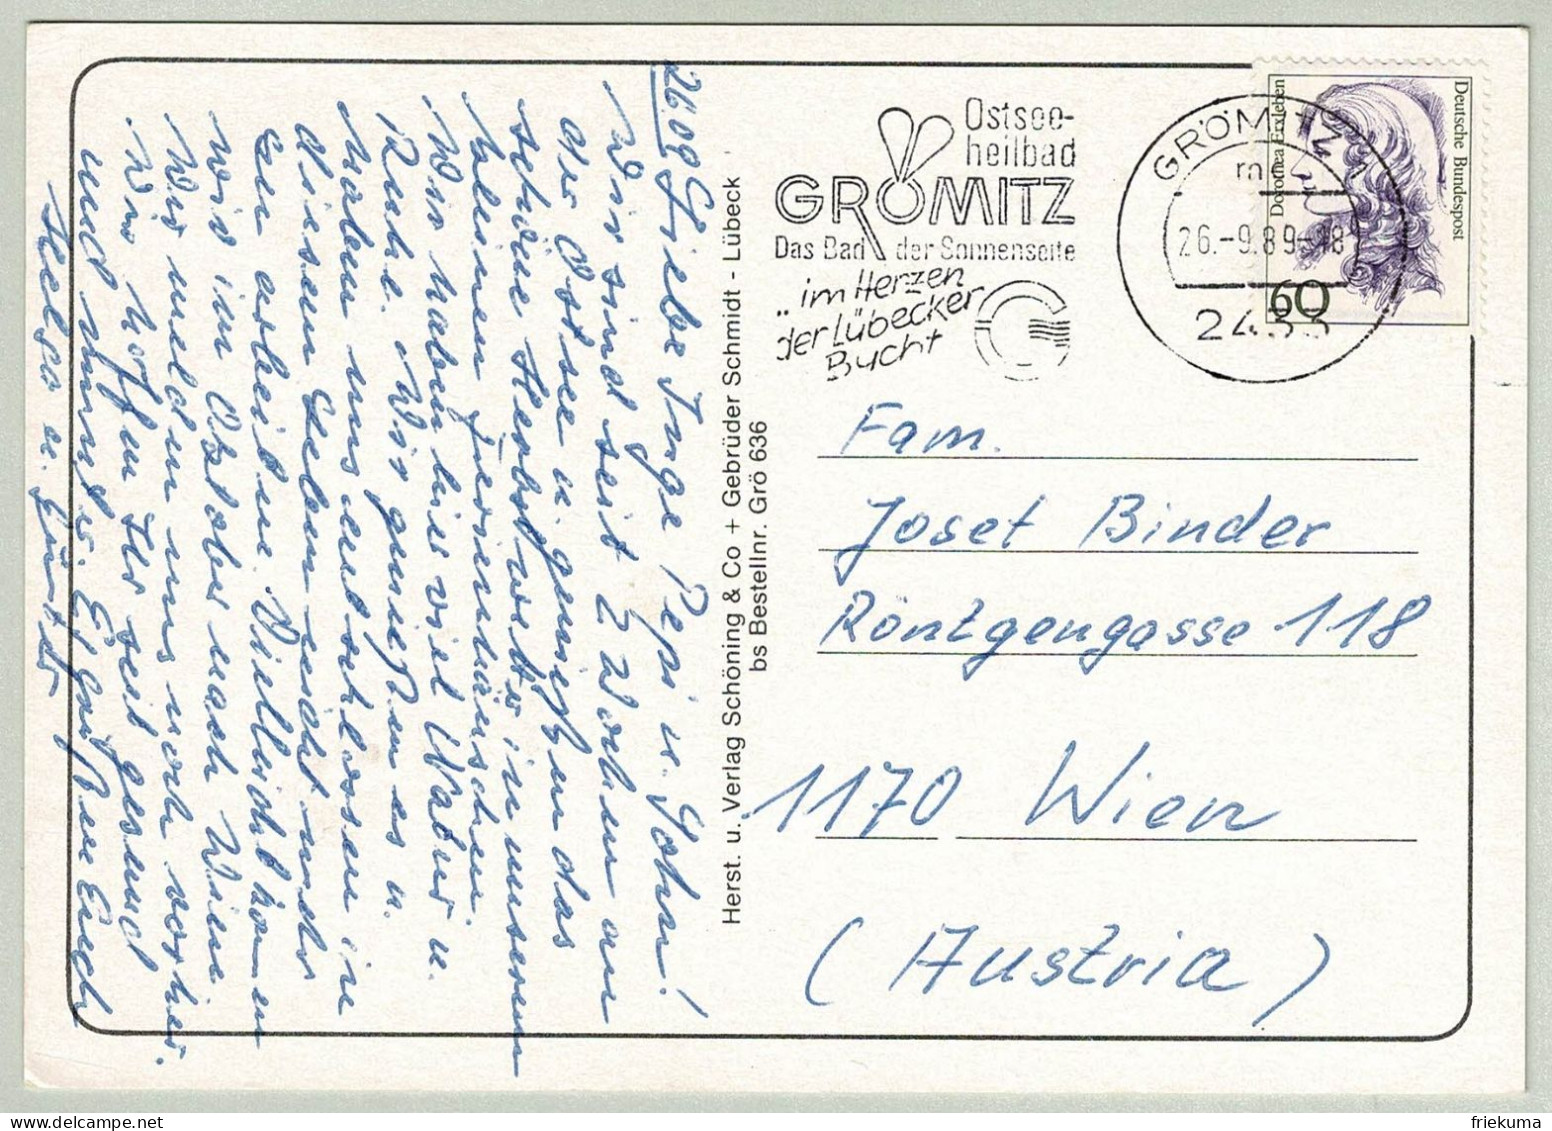 26.09. Liebe Inge Pepi u. John!
Wir sind seit 2 Wochen an
der Ostsee u. genießen das
schöne Herbstwetter in unserem
kleinen Ferienhäuschen.
Wir haben hier viel Natur u.
Ruhe. Wir genießen es u.
haben uns entschlossen in
diesem Leben nicht mehr
zu arbeiten. Vielleicht kommen
wir im Oktober nach Wien
Wir melden uns noch vorher.
Wir hoffen Ihr seit gesund
und munter. Es grüßen Euch
Helga u. Günter
Herst. u. Verlag Schöning & Co + Gebrüder Schmidt - Lübeck
bs Bestellnr. Grö 636
Ostsee-
heilbad
GRÖMITZ
Das Bad der Sonnenseite
„im Herzen
der Lübecker
Bucht
GRÖMITZ 1
m
26.-9.89-18
2433
Deutsche Bundespost
Dorothea Erxleben
60
Fam.
Josef Binder
Röntgengasse 118
1170 Wien
(Austria)
friekuma